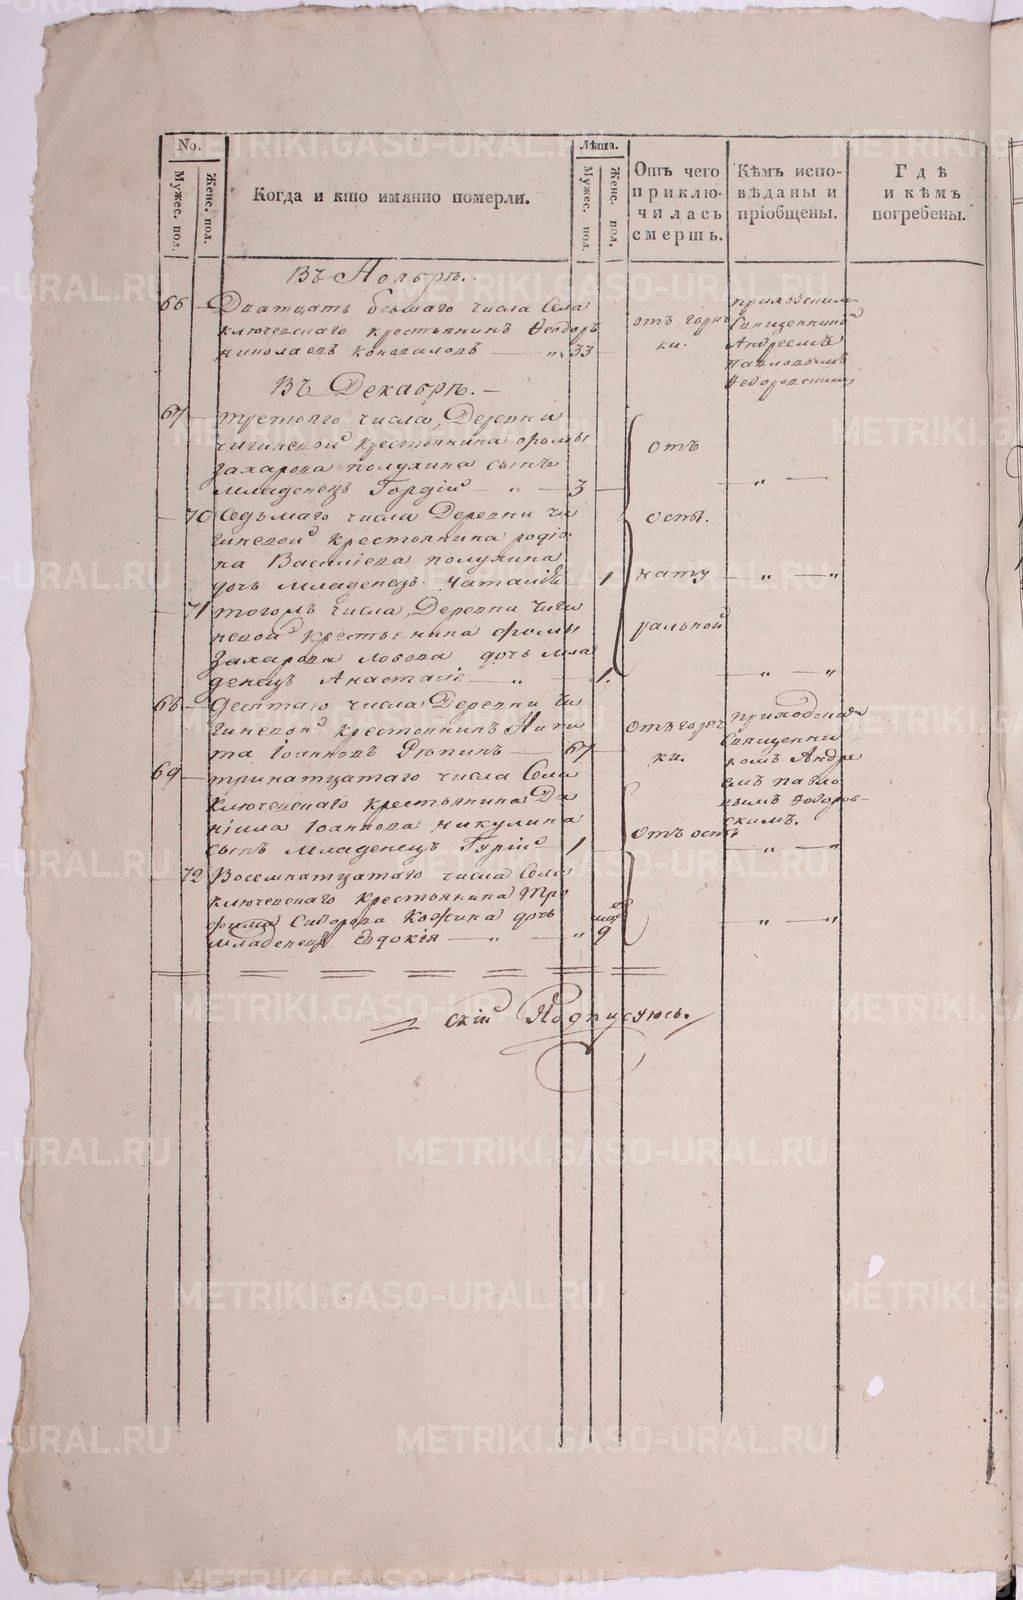 No.
Мужес. пол.
Женс. пол.
Когда и кто имянно померли.
Лѣта.
Мужес. пол.
Женс. пол.
Отъ чего
приклю-
чилась
смерть.
Кѣмъ испо-
вѣданы и
пріобщены.
Гдѣ
и кѣмъ
погребены.
Въ Ноябрѣ.
66 — числа Села
Ключевскаго крестьянинъ Ѳеодоръ
Николаевъ Коноваловъ — „ 33
отъ горяч
ки.
Священник
Андреемъ
Павловымъ
Въ Декабрѣ. —
67 третяго числа Деревни
Чигиневой крестьянина Фомы
Захарова Полухина сынъ
младенецъ Гордій — „ — 3 —
отъ
„ —
— 70 Седьмаго числа Деревни Чи
гиневой крестьянина Родіо
на Василіева Полухина
дочь младенецъ Наталія 1
оспы.
нату
— „ — „
— 71 тогожъ числа Деревни Чиги
невой крестьянина Фомы
Захарова дочь мла
денецъ Анастасія — „ — 1.
ральной
— „ — „
68 — десятаго числа Деревни Чи
гиневой крестьянинъ Ники
та Іоанновъ Рѣпинъ — 67 —
отъ горяч
ки.
приходским
Священни
комъ Андре
емъ Павло
вымъ Ѳеодоров-
скимъ.
69 — тринатцатаго числа Села
Ключевскаго крестьянина Да
ніила Іоаннова Никулина
сынъ младенецъ Гурій 1 —
отъ оспы
— „ — „
— 72 Восемнатцатаго числа Села
Ключевскаго крестьянина Тро
фима Сидорова Кожина дочь
младенецъ Евдокія — „ — „ 9
— „ — „
скій Подписуюсь.
METRIKI.GASO-URAL.RU